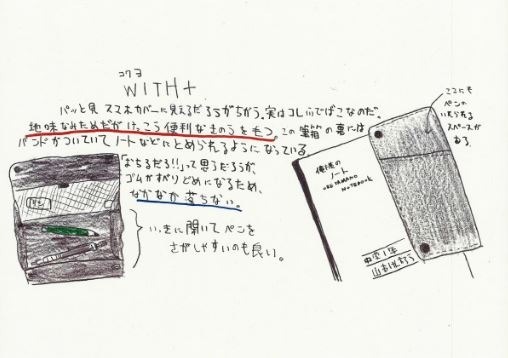 コクヨ
WITH+
パッと見 スマホカバーに見えるだろうがちがう。実はコレふでばこなのだ。
地味なみためだがけっこう便利なきのうをもつ。この筆箱の裏には
バンドがついていてノートなどにとめられるようになっている
「おちるだろ!!」って思うだろうが、
ゴムがすべりどめになるため、
なかなか落ちない。
いっきに開いてペンを
さがしやすいのも良い。
ここにも
ペンの
いれられる
スペースが
ある。
俺様の
ノート
NOTEBOOK